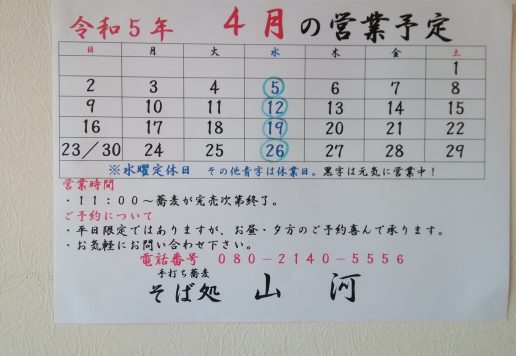 令和5年 4月の営業予定
日 月 火 水 木 金 土
1
2 3 4 5 6 7 8
9 10 11 12 13 14 15
16 17 18 19 20 21 22
23/30 24 25 26 27 28 29
※水曜定休日 その他青字は休業日。黒字は元気に営業中!
営業時間
・11:00~蕎麦が完売次第終了。
ご予約について
・平日限定ではありますが、お昼・夕方のご予約喜んで承ります。
・お気軽にお問い合わせ下さい。
電話番号 080-2140-5556
手打ち蕎麦
そば処 山河